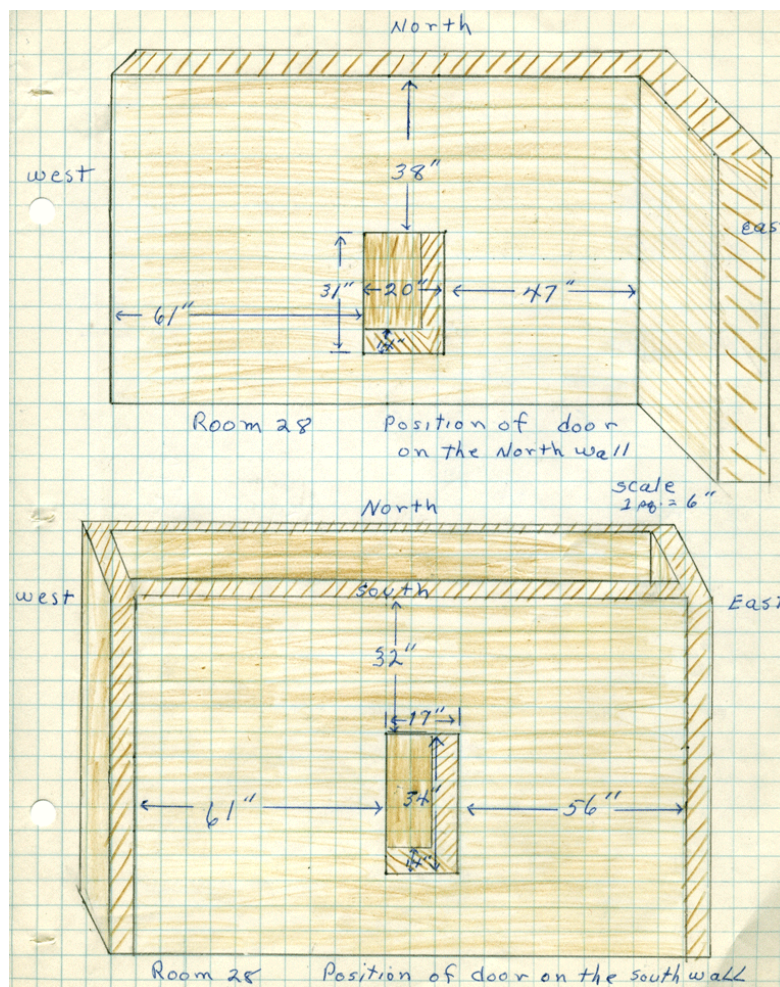 North
west
38"
East
31"
20"
47"
61"
14"
Room 28
Position of door
on the North wall
scale
1 sq. = 6"
North
west
South
East
32"
17"
34"
61"
56"
14"
Room 28
Position of door on the south wall